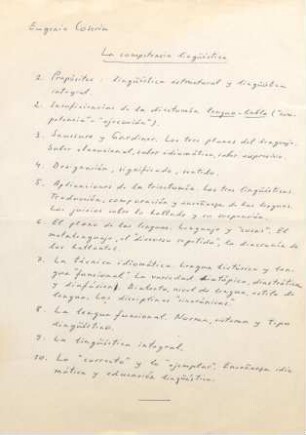 Eugenio Coseriu
La competencia lingüística
1. Propósitos: lingüística estructural y lingüística
integral.
2. Insuficiencias de la dicotomía lengua-habla ("com-
petencia" - "ejecución").
3. Saussure y Gardiner. Los tres planos del lenguaje.
Saber elocucional, saber idiomático, saber expresivo.
4. Designación, significado, sentido.
5. Aplicaciones de la tricotomía. Las tres lingüísticas.
Traducción, comparación y enseñanza de las lenguas.
Los juicios sobre lo hablado y su suspensión.
6. El plano de las lenguas. Lenguaje y "cosas". El
metalenguaje, el "discurso repetido", la diacronía de
los hablantes.
7. La técnica idiomática. Lengua histórica y len-
gua "funcional". La variedad diatópica, diastrática
y diafásica. Dialecto, nivel de lengua, estilo de
lengua. Las disciplinas
8. La lengua funcional. Norma, sistema y tipo
lingüístico.
9. La lingüística integral.
10. Lo "correcto" y lo "ejemplar". Enseñanza idio-
mática y educación lingüística.